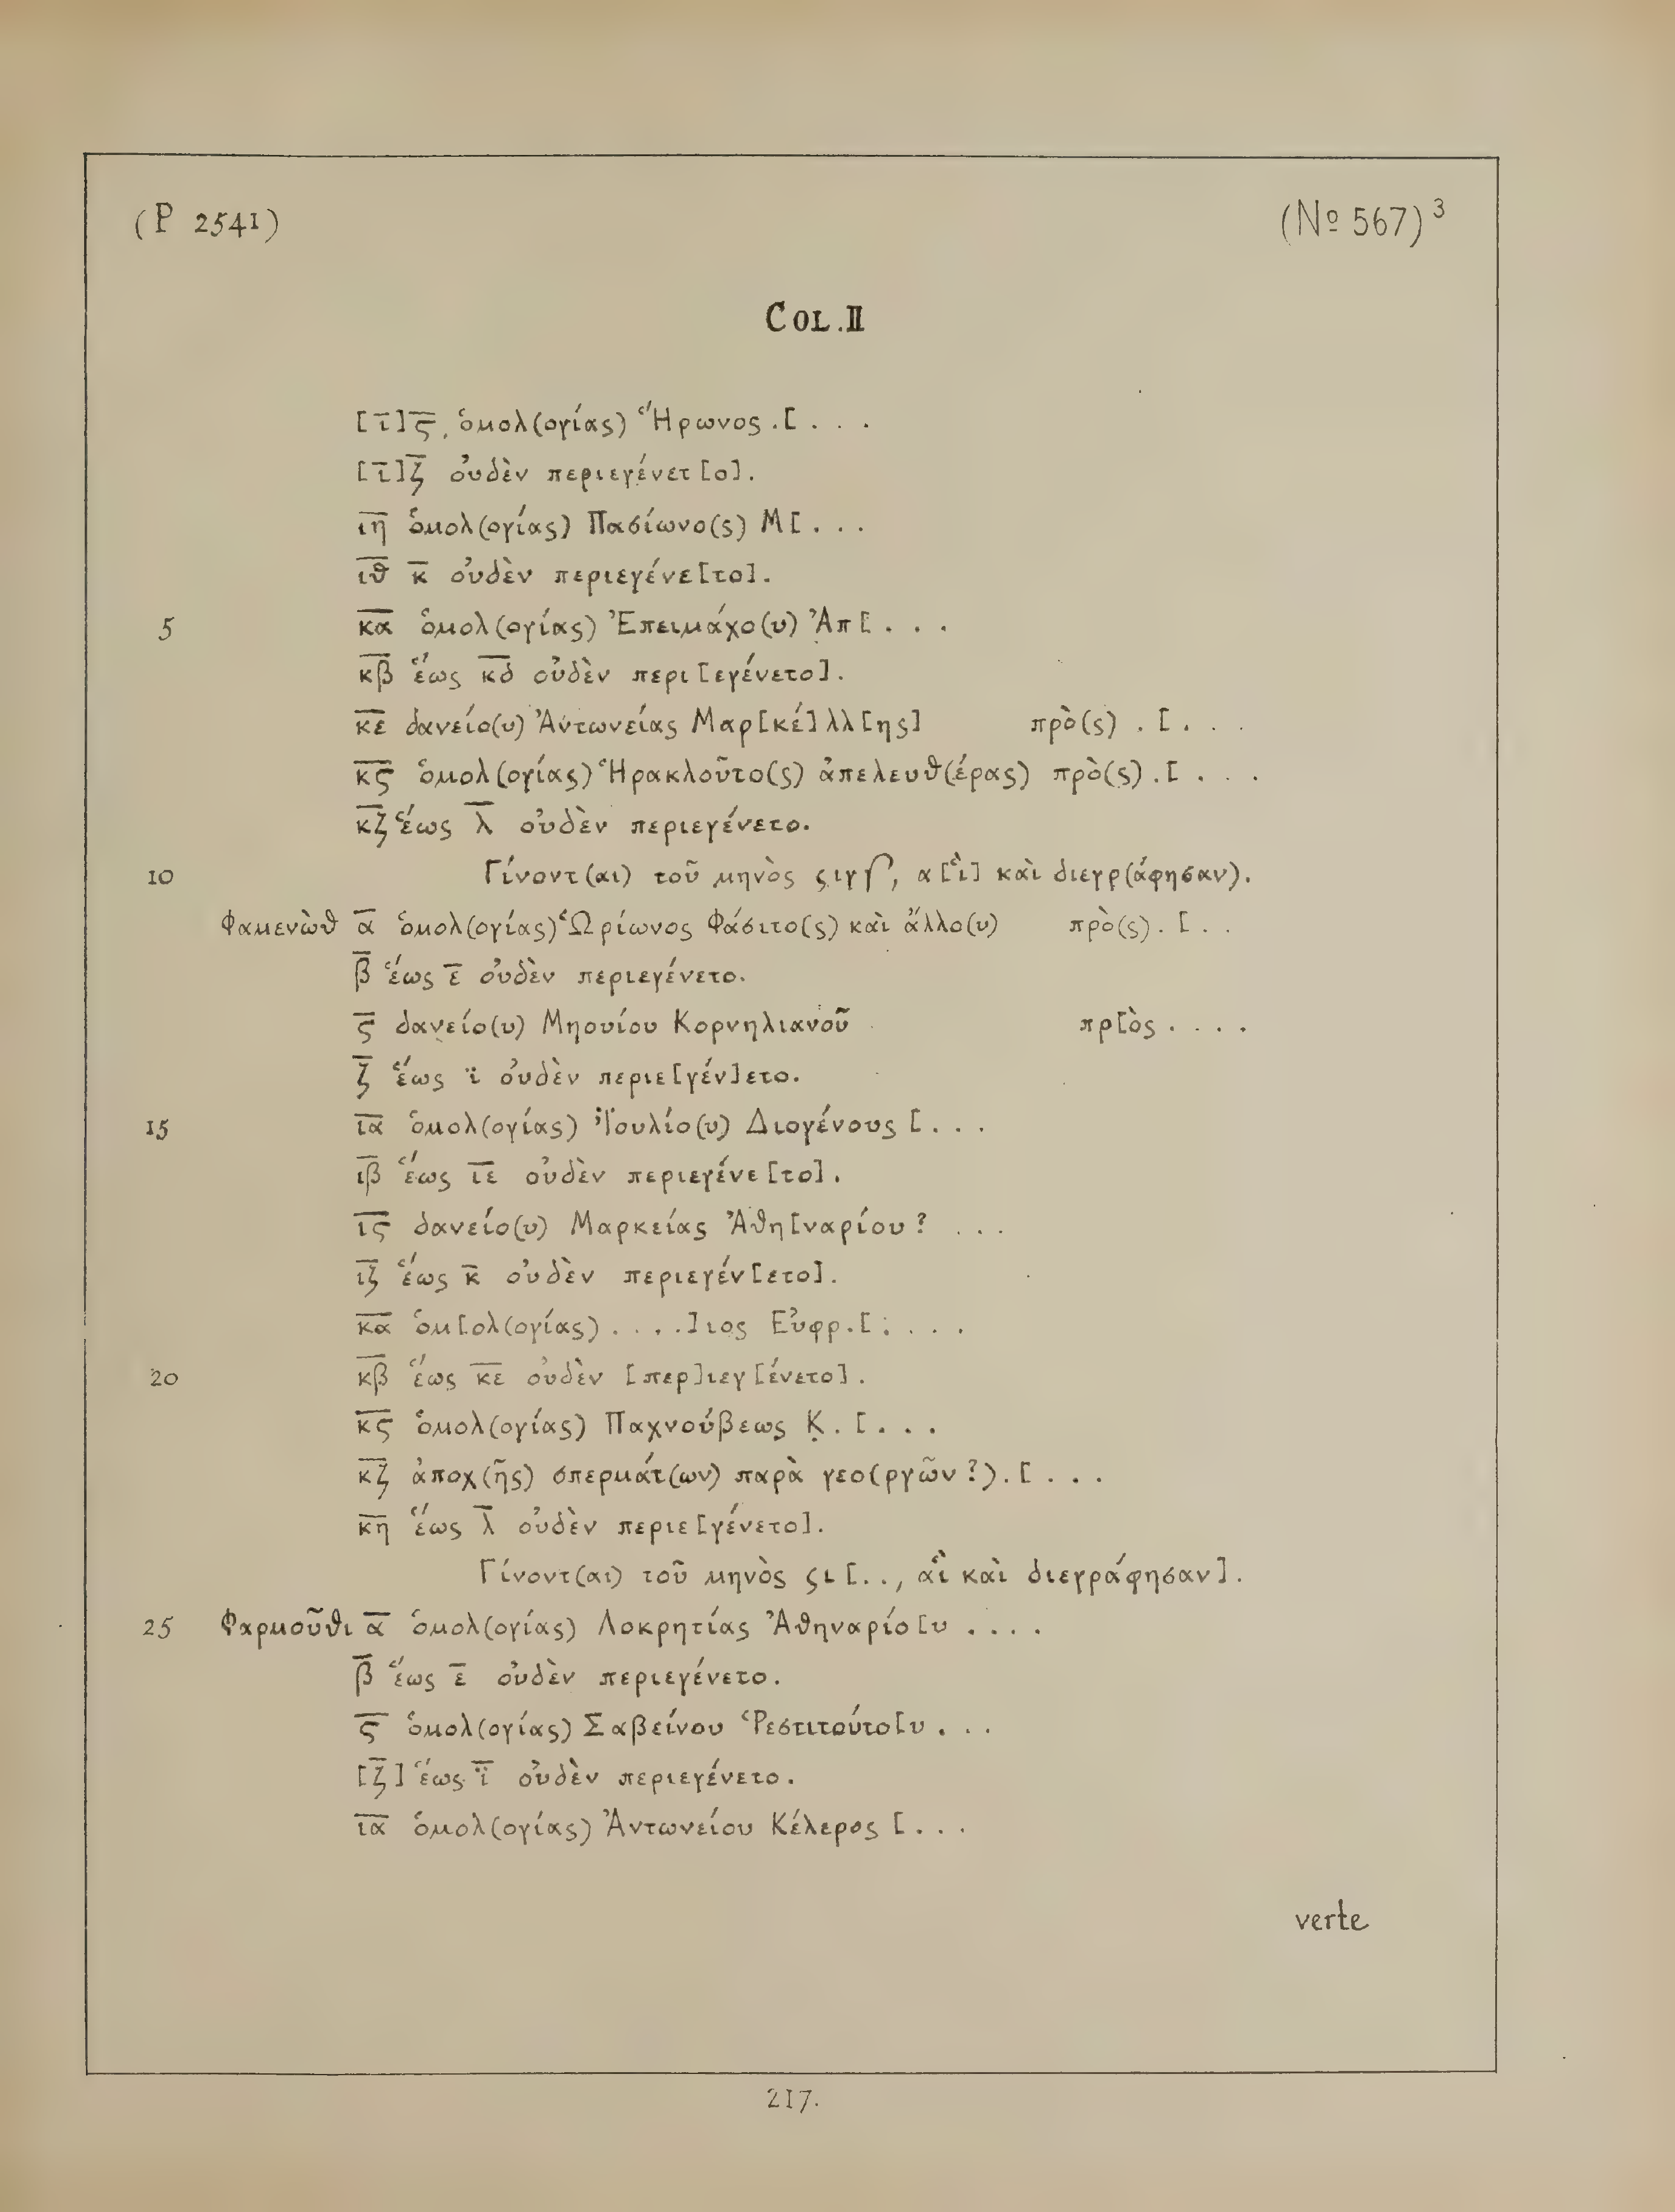 (P 2541) (No 567)³
COL. II
[ι̅]ϛ̅. ὁμολ(ογίας) Ἥρωνος .[ . . .
[ι̅]ζ̅ οὐδὲν περιεγένετ[ο].
ι̅η̅ ὁμολ(ογίας) Πασίωνο(ς) Μ[ . . .
ι̅θ̅ κ̅ οὐδὲν περιεγένε[το].
5 κ̅α̅ ὁμολ(ογίας) Ἐπειμάχο(υ) Ἀπ[ . . .
κ̅β̅ ἕως κ̅δ̅ οὐδὲν περι[εγένετο].
κ̅ε̅ δανείο(υ) Ἀντωνείας Μαρ[κέ]λλ[ης] πρὸ(ς) . [ . . .
κ̅ϛ̅ ὁμολ(ογίας) Ἡρακλοῦτο(ς) ἀπελευθ(έρας) πρὸ(ς) .[ . . .
κ̅ζ̅ ἕως λ̅ οὐδὲν περιεγένετο.
10 Γίνοντ(αι) τοῦ μηνὸς ϛιγʃ, α[ἳ] καὶ διεγρ(άφησαν).
Φαμενὼθ α̅ ὁμολ(ογίας) Ὡρίωνος Φάσιτο(ς) καὶ ἄλλο(υ) πρὸ(ς) . [ . .
β̅ ἕως ε̅ οὐδὲν περιεγένετο.
ϛ̅ δανείο(υ) Μηουίου Κορνηλιανοῦ πρ[ὸς . . . .
ζ̅ ἕως ϊ οὐδὲν περιε[γέν]ετο.
15 ι̅α̅ ὁμολ(ογίας) Ἰουλίο(υ) Διογένους [ . . .
ι̅β̅ ἕως ι̅ε̅ οὐδὲν περιεγένε[το].
ι̅ϛ̅ δανείο(υ) Μαρκείας Ἀθη[ναρίου? . . .
ι̅ζ̅ ἕως κ̅ οὐδὲν περιεγέν[ετο].
κ̅α̅ ὁμ[ολ(ογίας) . . . .]ιος Εὐφρ.[ . . . .
20 κ̅β̅ ἕως κ̅ε̅ οὐδὲν [περ]ιεγ[ένετο].
κ̅ϛ̅ ὁμολ(ογίας) Παχνούβεως Κ̣ . [ . . .
κ̅ζ̅ ἀποχ(ῆς) σπερμάτ(ων) παρὰ γεο(ργῶν?) . [ . . .
κ̅η̅ ἕως λ̅ οὐδὲν περιε[γένετο].
Γίνοντ(αι) τοῦ μηνὸς ϛι[ . . , αἳ καὶ διεγράφησαν].
25 Φαρμοῦθι α̅ ὁμολ(ογίας) Λοκρητίας Ἀθηναρίο[υ . . . .
β̅ ἕως ε̅ οὐδὲν περιεγένετο.
ϛ̅ ὁμολ(ογίας) Σαβείνου Ῥεστιτούτο[υ . . .
[ζ̅] ἕως ϊ̅ οὐδὲν περιεγένετο.
ι̅α̅ ὁμολ(ογίας) Ἀντωνείου Κέλερος [ . . .
verte
217.